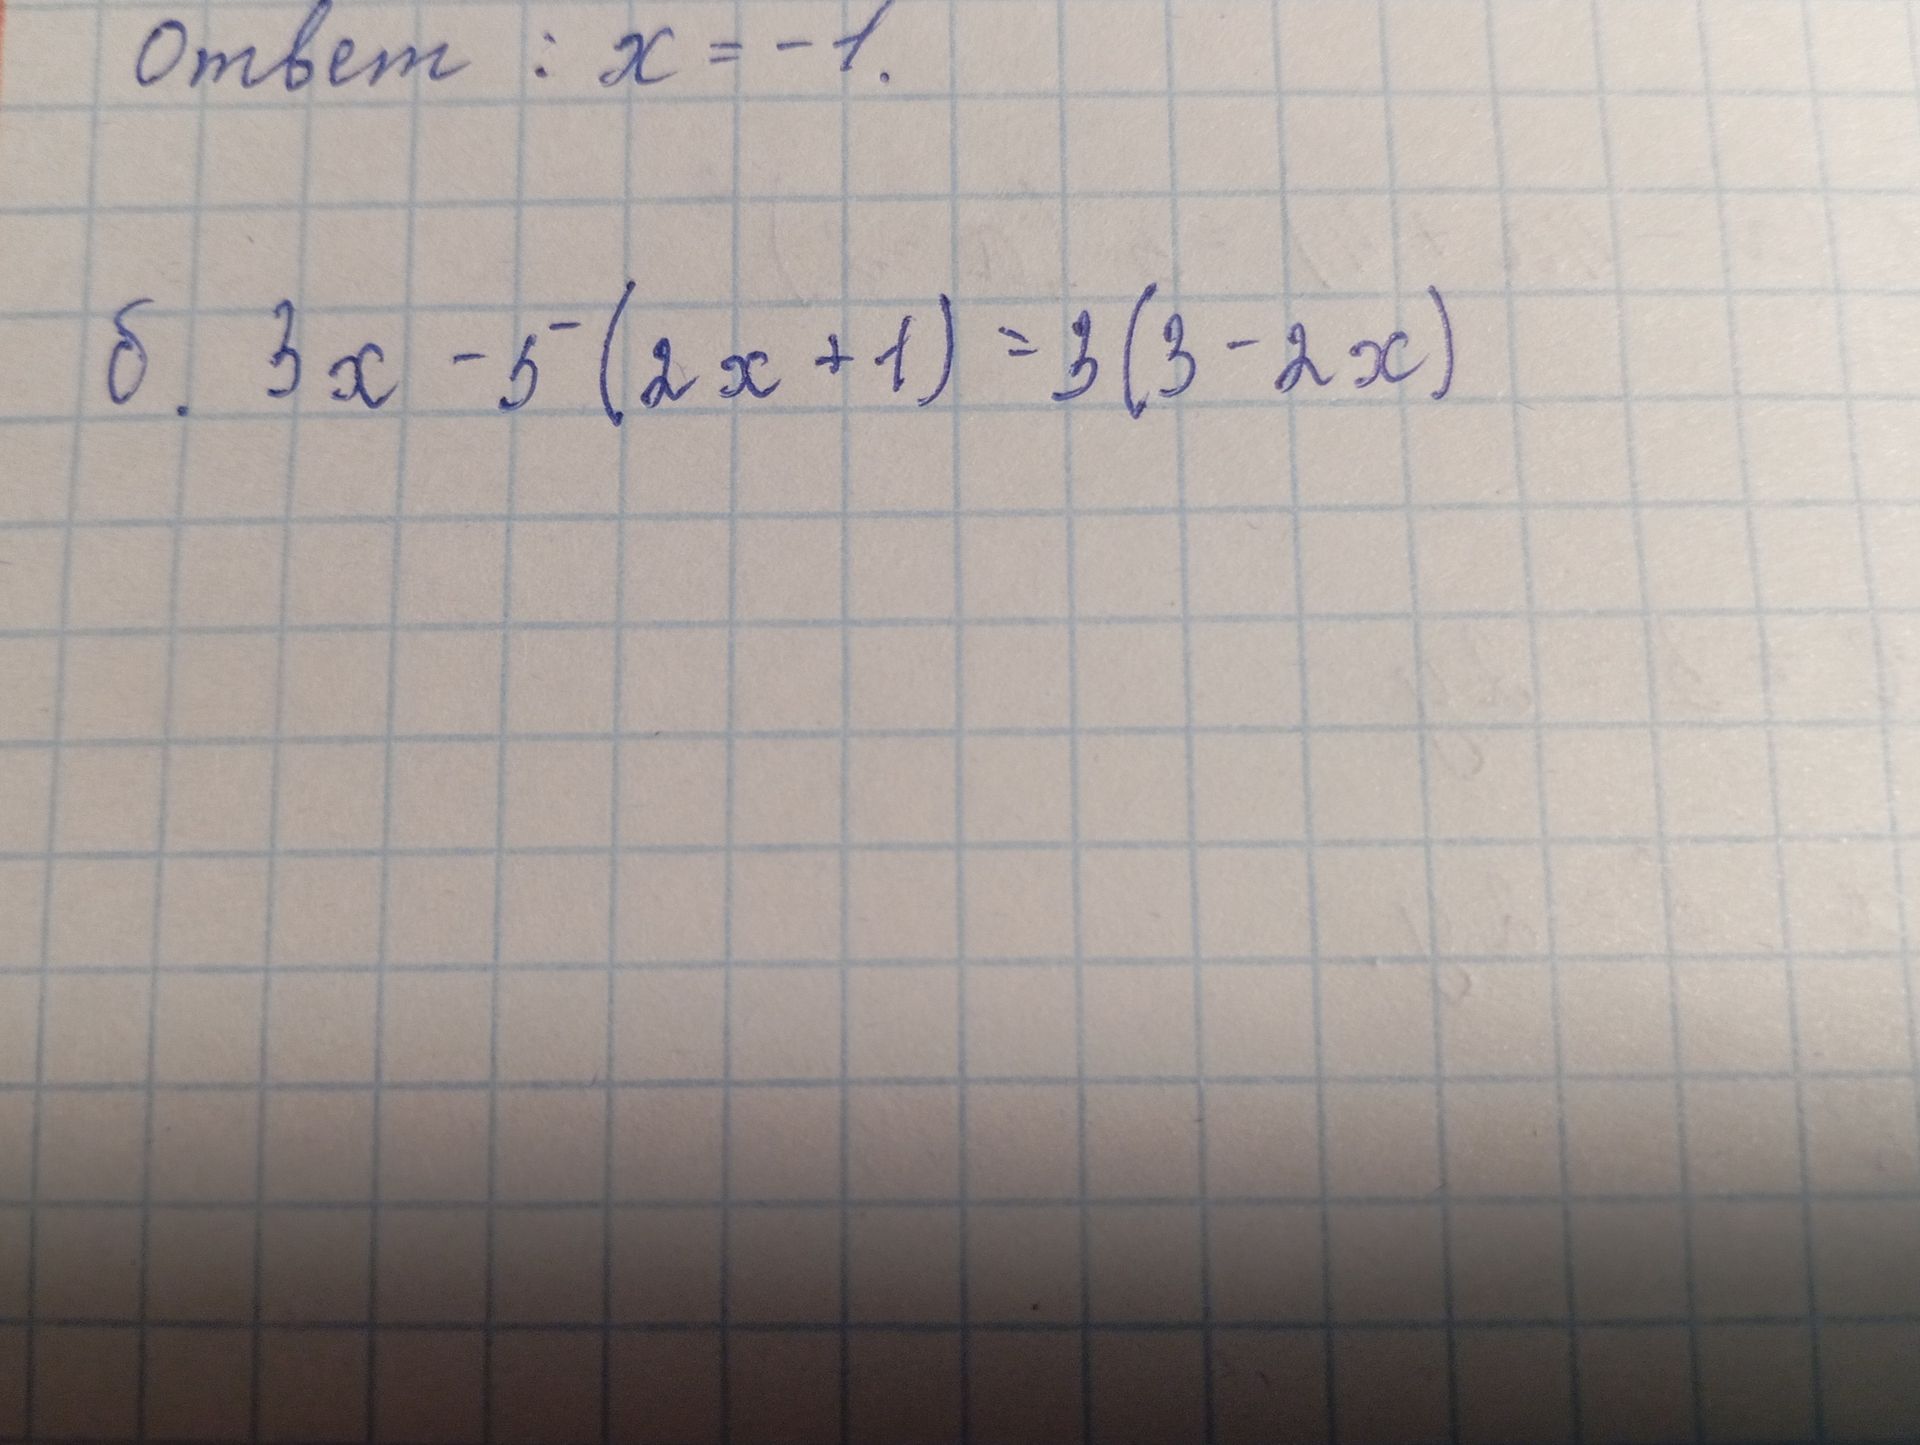 Ответ : x = -1.
б. 3x - 5(2x + 1) = 3(3 - 2x)